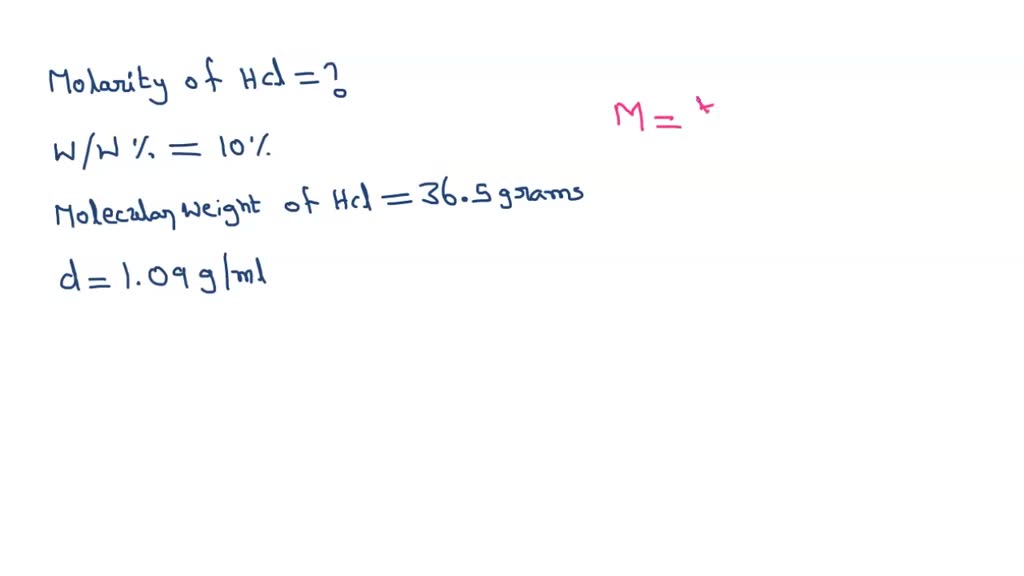 Molarity of Hcl = ?
W/W % = 10%
Molecular weight of Hcl = 36.5 grams
d = 1.09 g/ml
M =